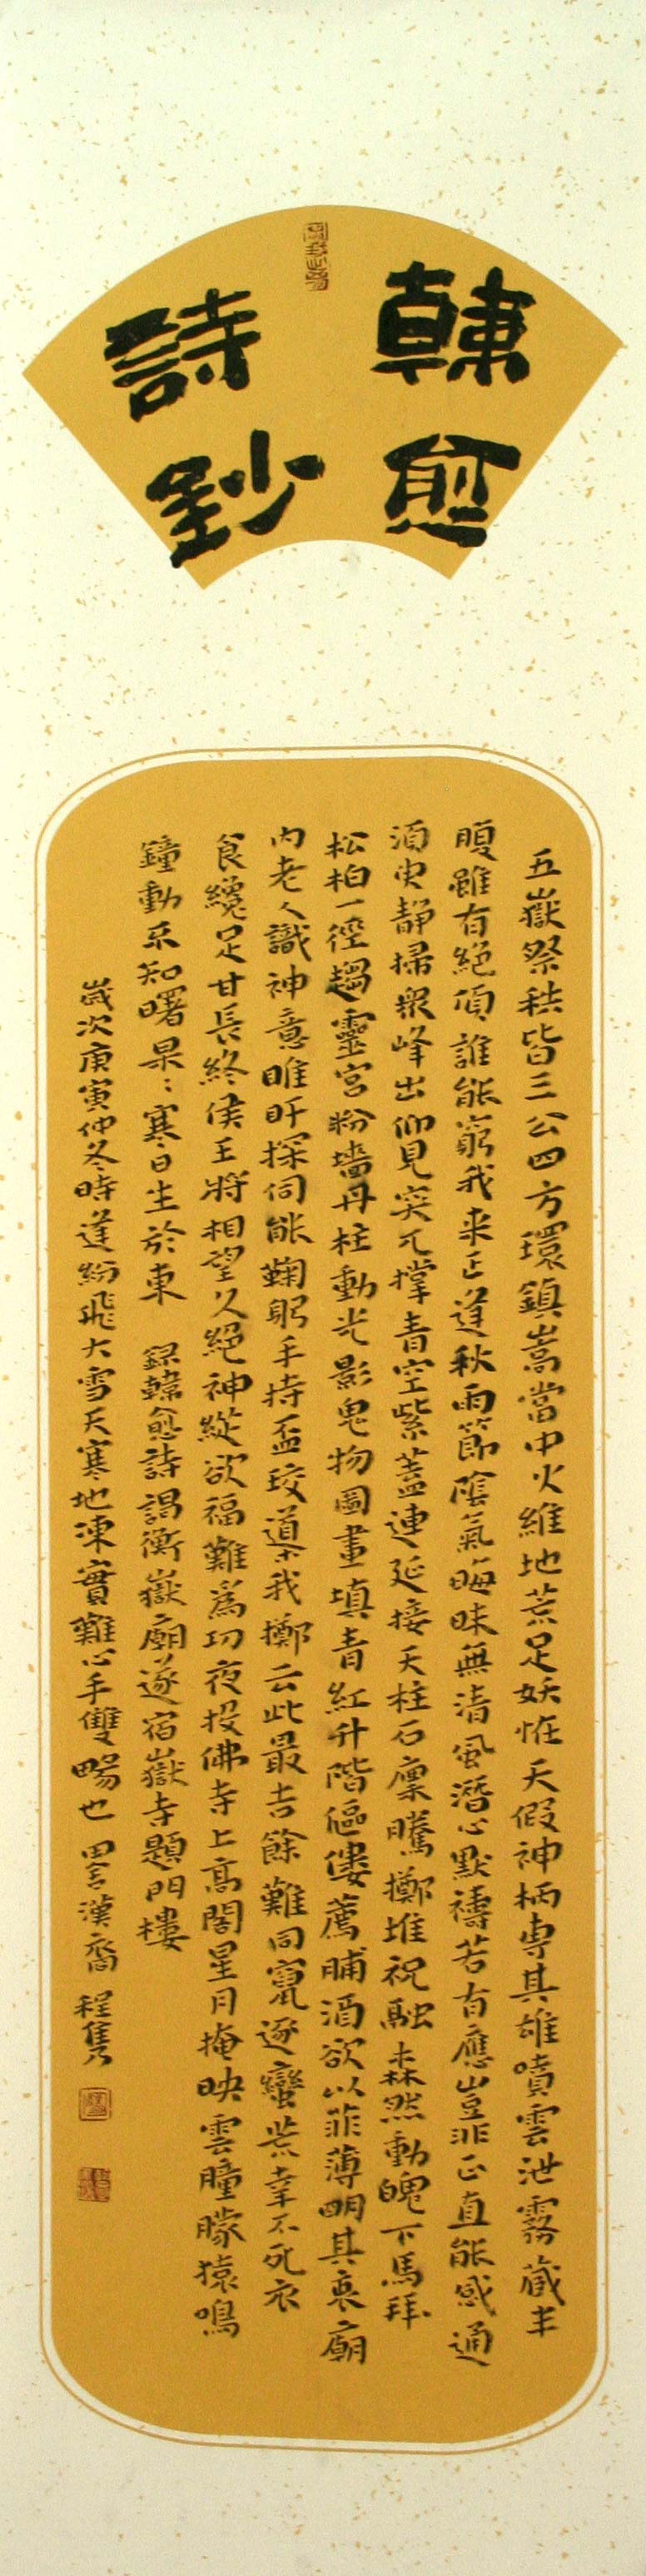 韓愈
詩鈔
五嶽祭秩皆三公四方環鎮嵩當中火維地荒足妖怪天假神柄専其雄噴雲泄霧藏半
腹雖有絕頂誰能窮我来正逢秋雨節陰氣晦昧無清風潛心默禱若有應豈非正直能感通
須臾静掃衆峰出仰見突兀撑青空紫蓋連延接天柱石廩騰擲堆祝融森然動魄下馬拜
松柏一徑趨靈宮粉墻丹柱動光影鬼物圖畫填青紅升階傴僂薦脯酒欲以菲薄明其衷廟
内老人識神意睢盱探伺能鞠躬手持盃珓導我擲云此最吉餘難同竄逐蠻荒幸不死衣
食纔足甘長終侯王將相望久絕神縱欲福難爲功夜投佛寺上高閣星月掩映雲曈朦猿鳴
鐘動不知曙杲杲寒日生於東 録韓愈詩謁衡嶽廟遂宿嶽寺題門樓
歲次庚寅仲冬時逢紛飛大雪天寒地凍實難心手雙暢也 漢裔 程隻